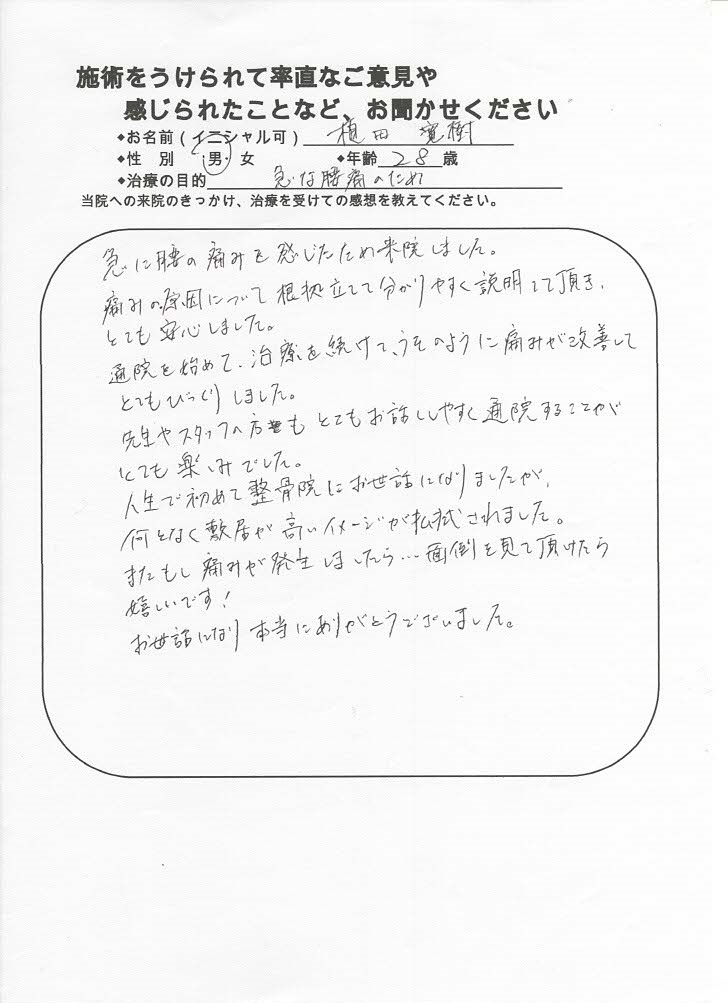 施術をうけられて率直なご意見や
感じられたことなど、お聞かせください
◆お名前(イニシャル可) 植田 寛樹
◆性 別 男・女 ◆年齢 28 歳
◆治療の目的 急な腰痛のため
当院への来院のきっかけ、治療を受けての感想を教えてください。
急に腰の痛みを感じたため来院しました。
痛みの原因について根拠立てて分かりやすく説明して頂き、
とても安心しました。
通院を始めて、治療を続けて、うそのように痛みが改善して
とてもびっくりしました。
先生やスタッフの方もとてもお話ししやすく通院することが
とても楽しみでした。
人生で初めて整骨院にお世話になりましたが、
何となく敷居が高いイメージが払拭されました。
またもし痛みが発生しましたら…面倒を見て頂けたら
嬉しいです!
お世話になり本当にありがとうございました。